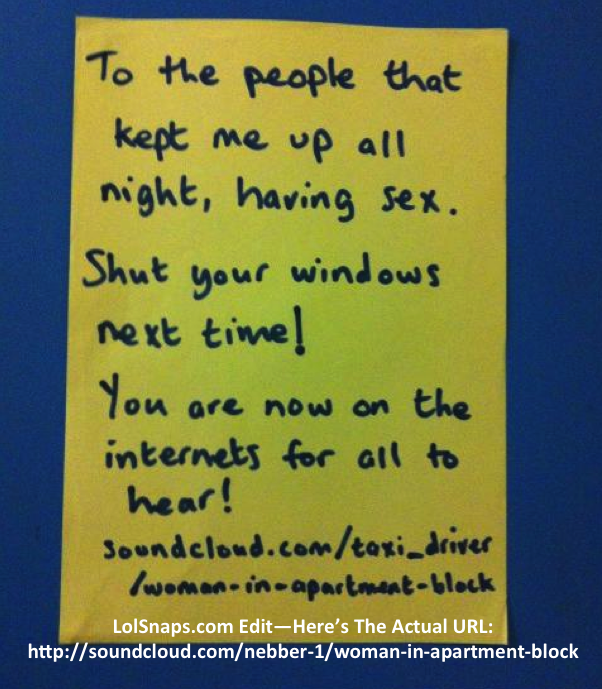 To the people that
kept me up all
night, having sex.
Shut your windows
next time!
You are now on the
internets for all to
hear!
soundcloud.com/taxi_driver
/woman-in-apartment-block
LolSnaps.com Edit—Here's The Actual URL:
http://soundcloud.com/nebber-1/woman-in-apartment-block